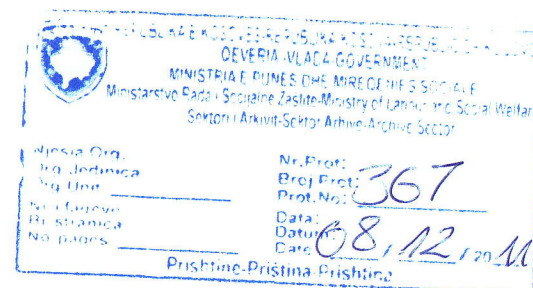 REPUBLIKA E KOSOVËS-REPUBLIKA KOSOVA-REPUBLIC OF KOSOVO
QEVERIA-VLADA-GOVERNMENT
MINISTRIA E PUNËS DHE MIRËQENIES SOCIALE
Ministarstvo Rada i Socijalne Zaštite-Ministry of Labour and Social Welfare
Sektori i Arkivit-Sektor Arhive-Archive Sector
Njësia Org.
Org. Jedinica
Org. Unit
Nr. i faqeve
Br. stranica
No. pages
Nr. Prot:
Broj Prot:
Prot. No: 367
Data:
Datum:
Date 08 / 12 / 20 11
Prishtinë-Priština-Prishtina